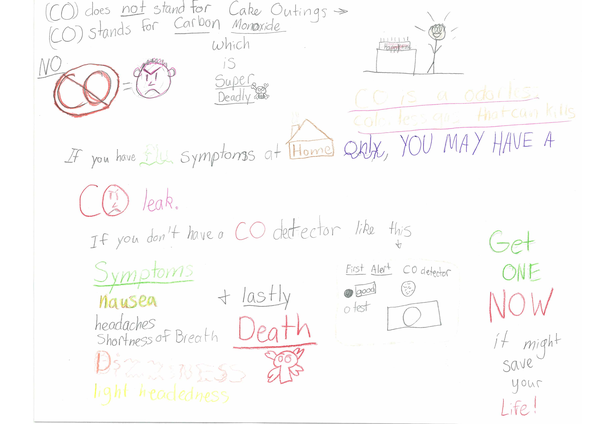 (CO) does not stand for Cake Outings →
(CO) stands for Carbon Monoxide
which
is
Super
Deadly
NO
CO
=
CO is a odorless
colorless gas that can kills
If you have flu symptoms at Home only, YOU MAY HAVE A
CO leak.
If you don't have a CO detector like this
Symptoms
nausea
headaches
Shortness of Breath
Dizziness
light headedness
+ lastly
Death
First Alert CO detector
good
test
Get
ONE
NOW
it might
save
your
Life!